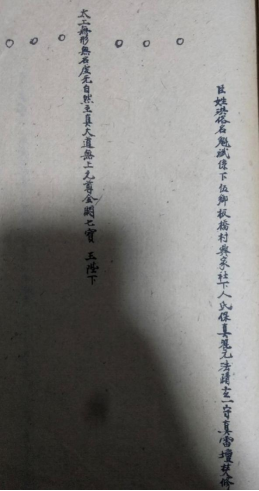 臣姓洪俗名魁斌系下伍鄉板橋村興家社下人氏保真龍元法請玄一守真雷壇焚修
太上無形無名虛无自然至真大道無上元尊金闕七寶 玉陛下